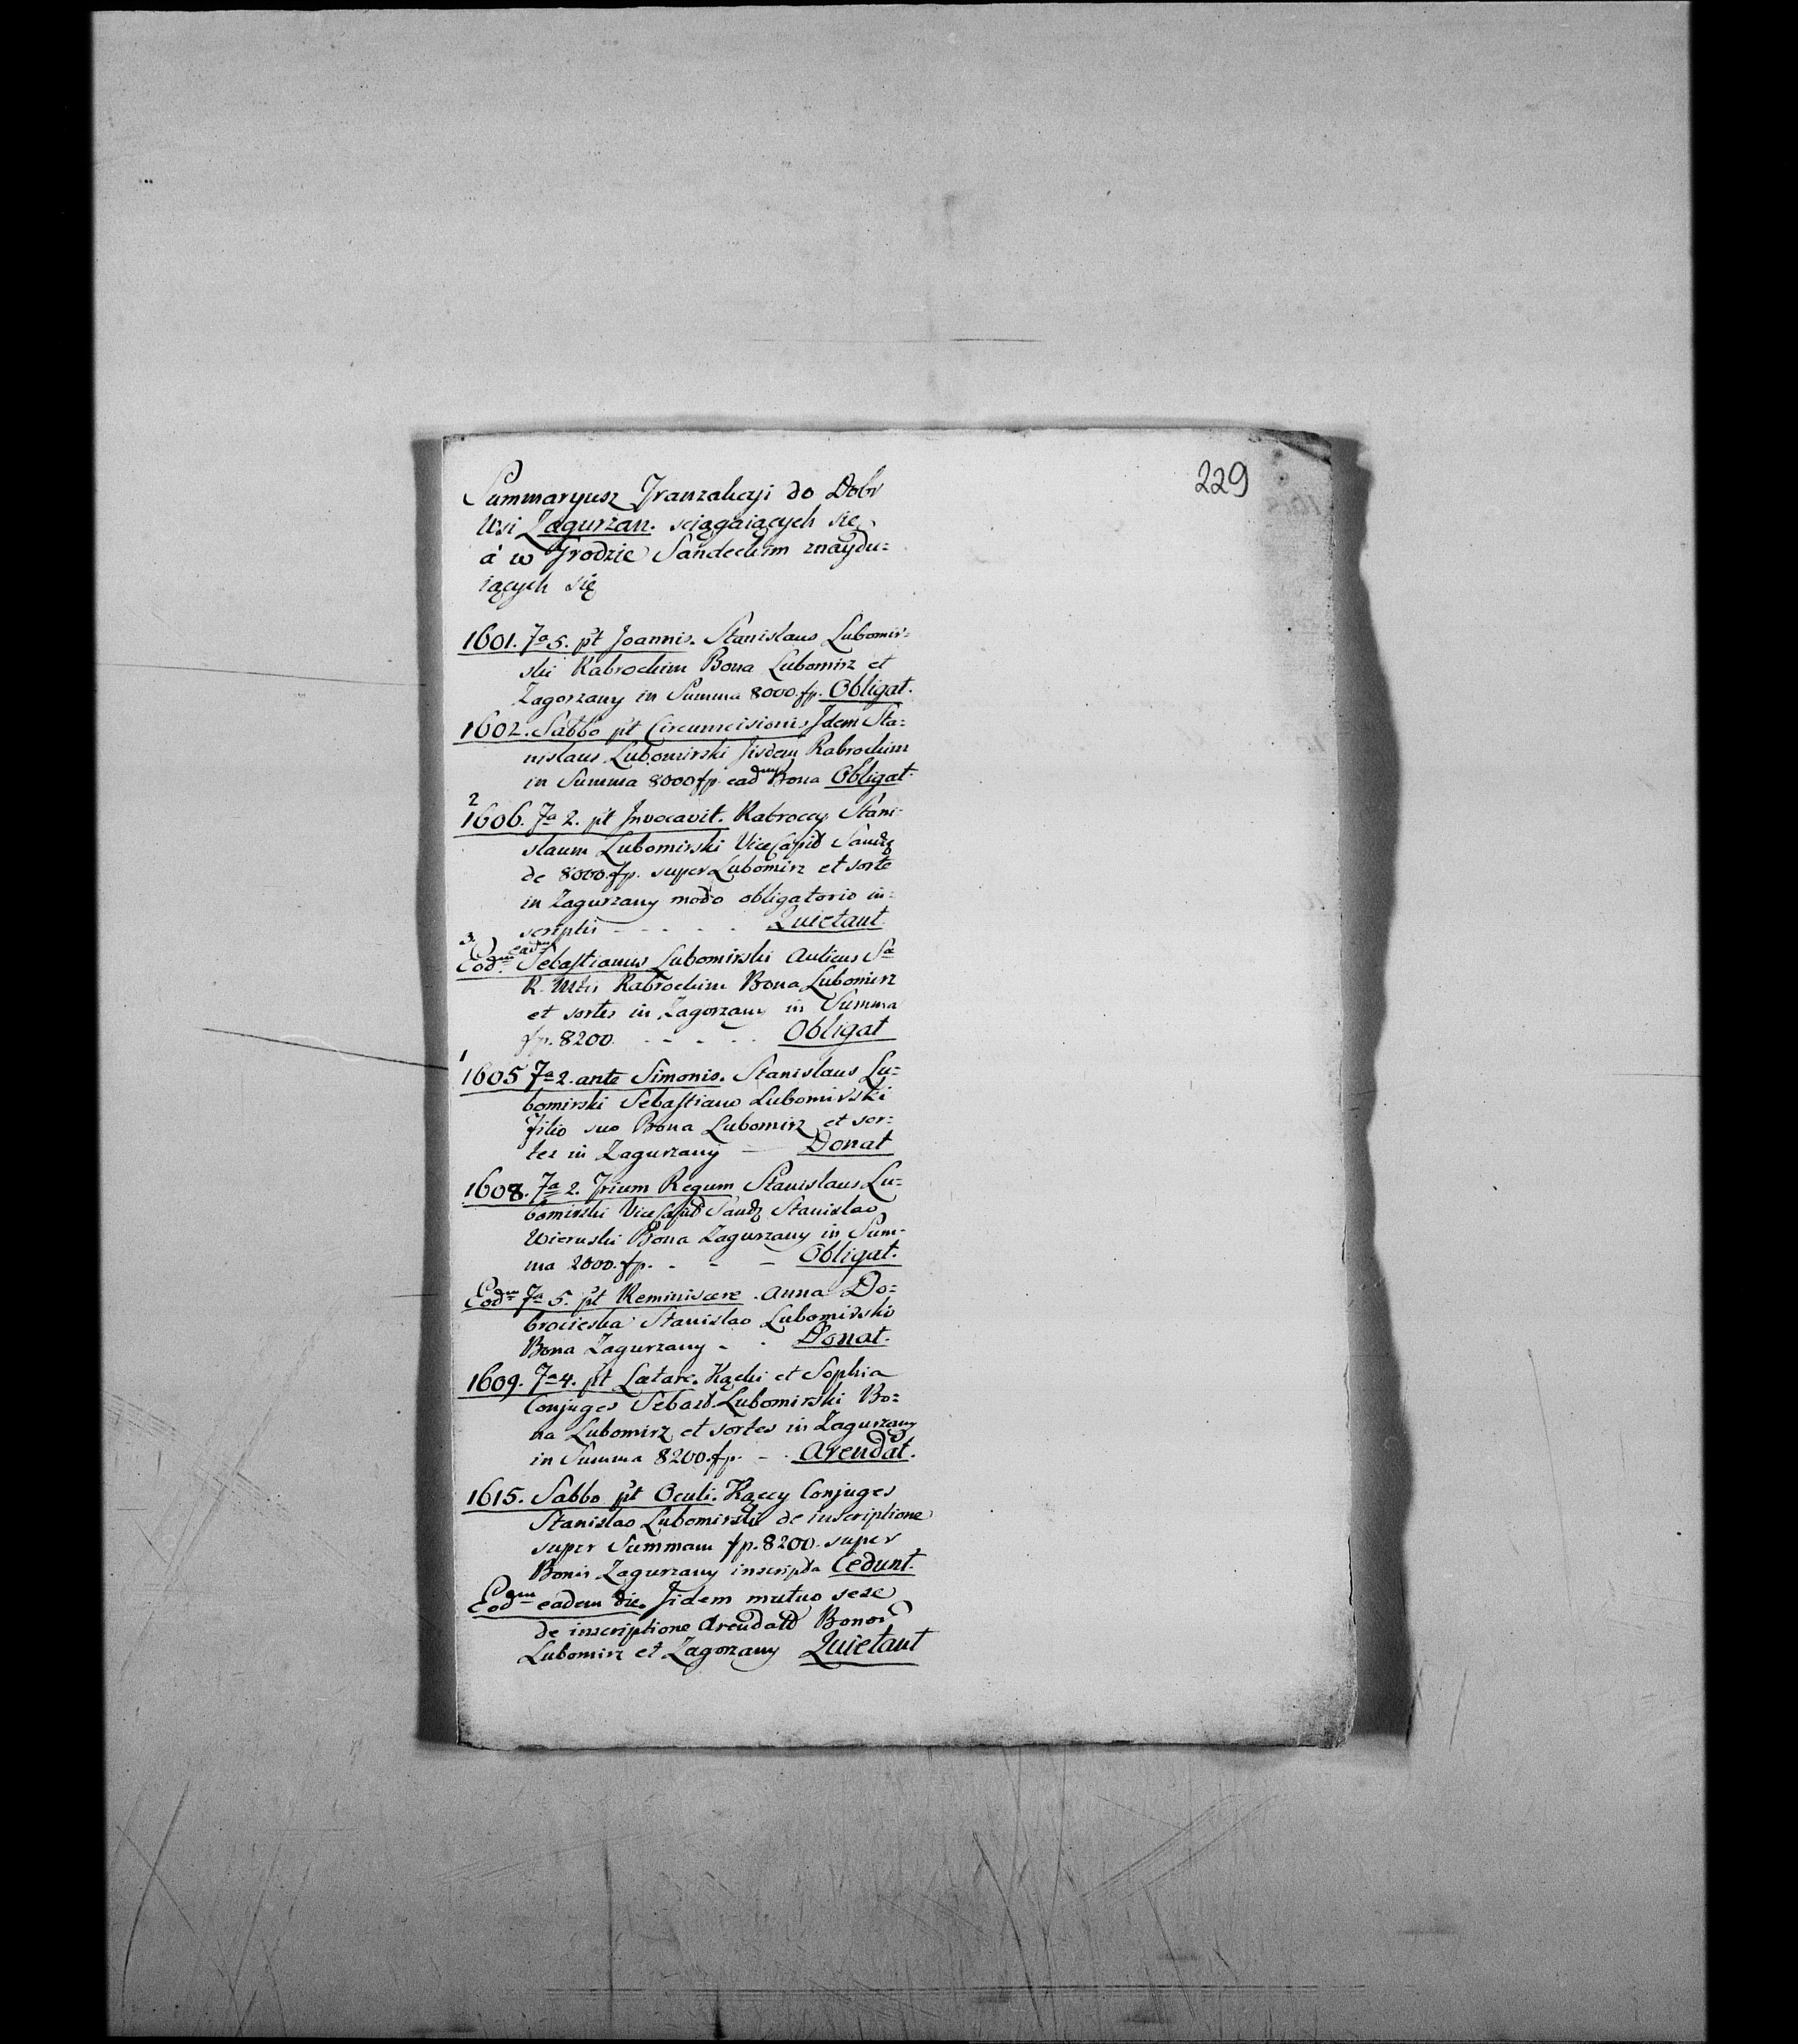 229
Summaryusz Tranzakcyi do Dobr
Wsi Zagurzan. sciągaiących się
á w Grodzie Sandeckim znaydu=
iących się
1601. fa 5. pt Joannis. Stanislaus Lubomir=
ski Rabrockim Bona Lubomirz et
Zagorzany in Summa 8000. fp. Obligat.
1602. Sabbo pt Circumcisionis Idem Sta=
nislaus Lubomirski Iisdem Rabrockim
in Summa 8000 fp. eadm Bona Obligat.
2
1606. fa 2. pt Invocavit. Rabroccy Stani=
slaum Lubomirski ViceCapit Sandz
de 8000. fp. super Lubomirz et sorte
in Zagurzany modo obligatorio in=
scriptis - - - - - Quietant.
3.
Eodm eadm Sebastianus Lubomirski Aulicus Sae
R. Mtis Rabrockim Bona Lubomirz
et sortes in Zagorzany in Summa
fp. 8200. - - - - Obligat
1
1605 fa 2. ante Simonis. Stanislaus Lu=
bomirski Sebastiano Lubomirski
filio suo Bona Lubomirz et sor=
tes in Zagurzany - Donat
1608. fa 2. Trium Regum Stanislaus Lu=
bomirski ViceCapit Sandz Stanislao
Wieruski Bona Zagurzany in Sum=
ma 2000. fp. - - - Obligat.
Eodm fa 5. pt Reminiscere. Anna Do=
brocieska Stanislao Lubomirski
Bona Zagurzany - - Donat.
1609. fa 4. pt Laetare. Kącki et Sophia
Conjuges Sebast. Lubomirski Bo=
na Lubomirz et sortes in Zagurzany
in Summa 8200. fp. - - Arendat.
1615. Sabbo pt Oculi. Kąccy Conjuges
Stanislao Lubomirski de inscriptione
super Summam fp. 8200. super
Bonis Zagurzany inscripta Cedunt.
Eodm eadem die. Iidem mutuo sese
de inscriptione Arendatt Bonor
Lubomirz et Zagorzany Quietant